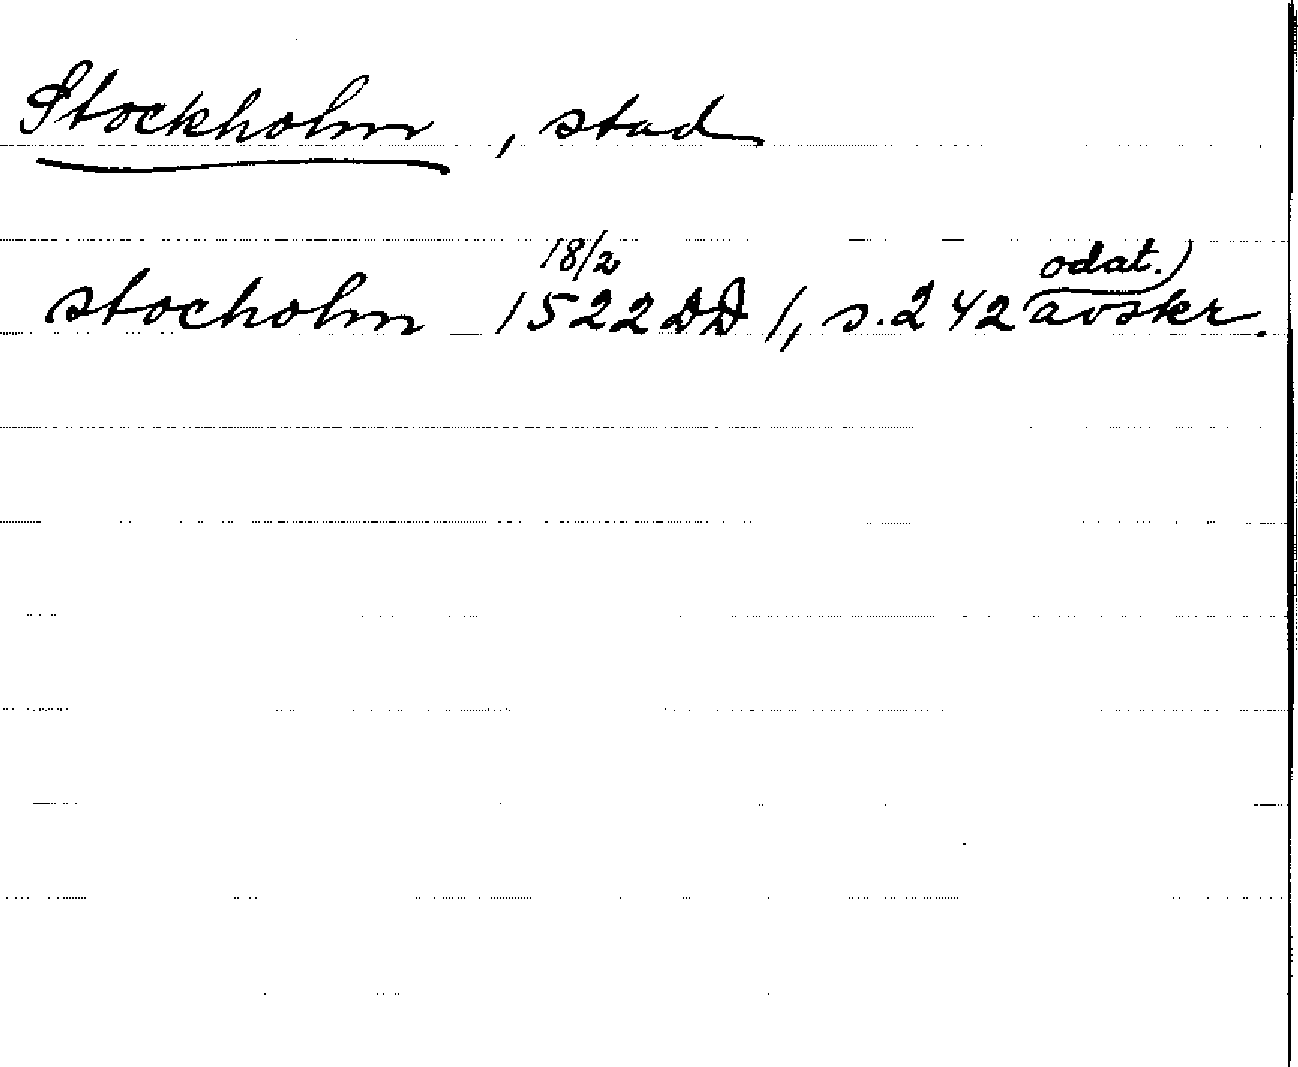 Stockholm, stad
18/2 odat.)
stocholm 1522 DD 1, s. 242 avskr.